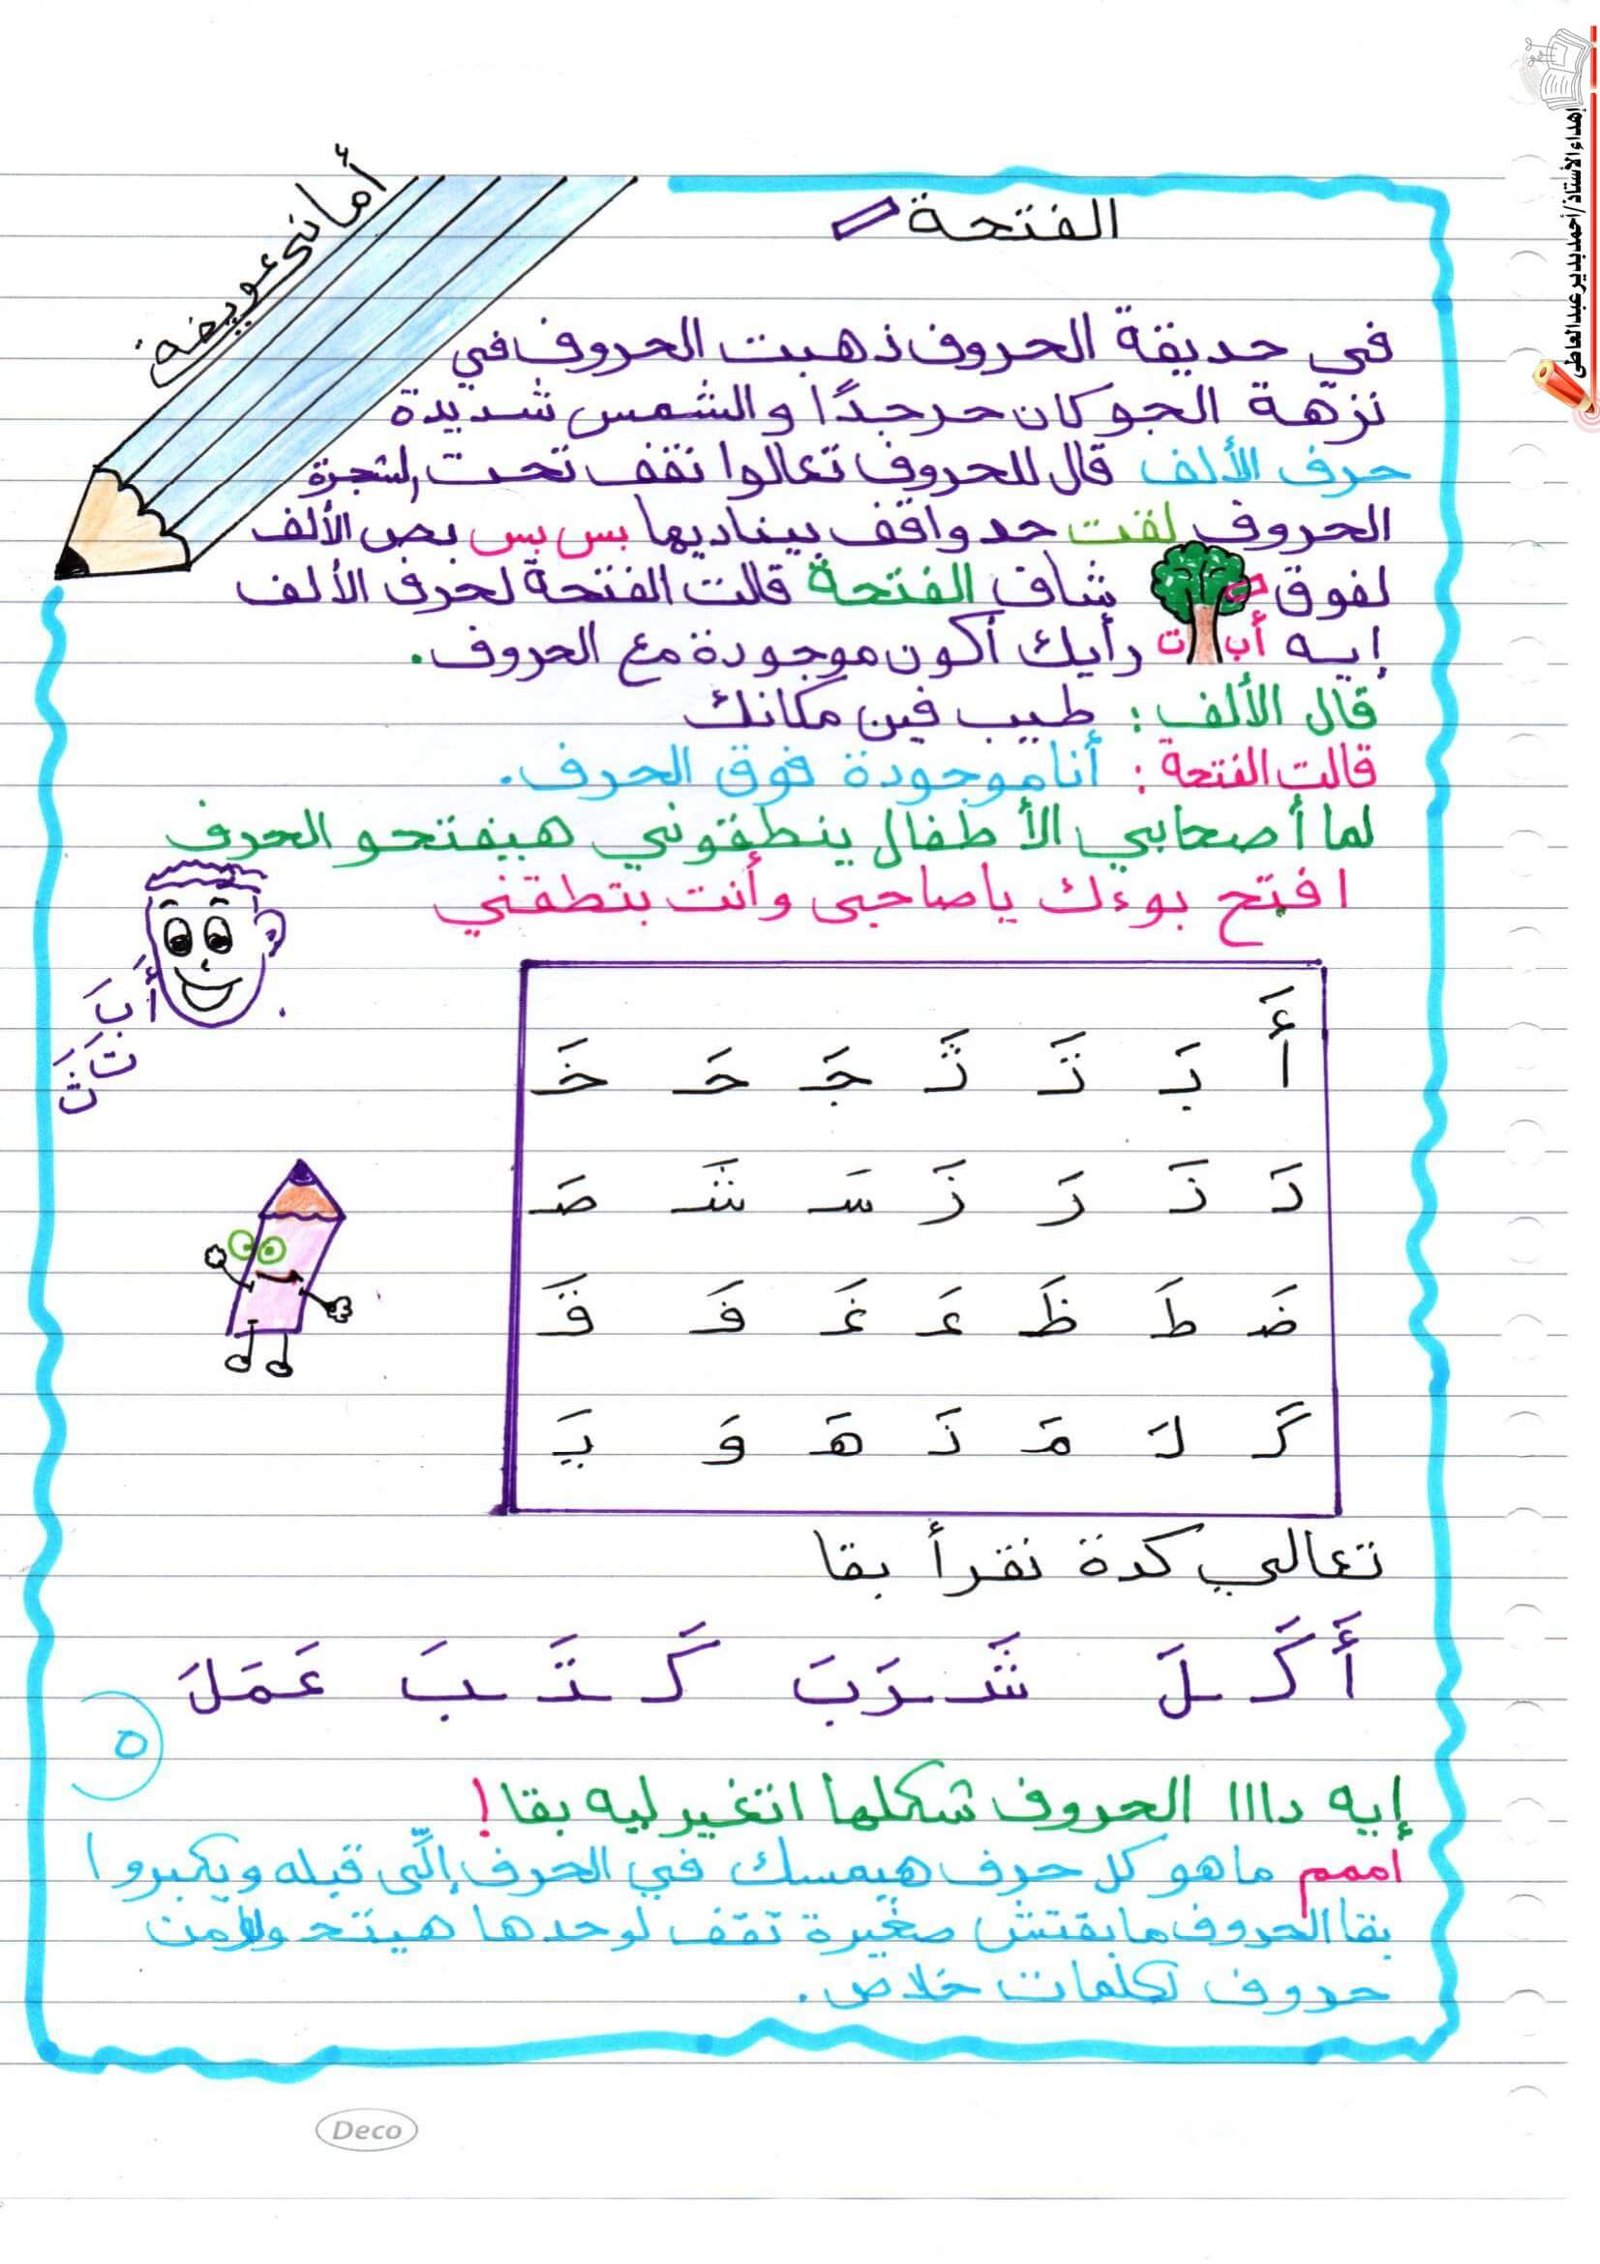 إهداء الأستاذ/أحمد بدير عبدالعاطى
أمانى عويضة
الفتحة
فى حديقة الحروف ذهبت الحروف في
نزهة الجو كان حر جدًا والشمس شديدة
حرف الألف قال للحروف تعالوا نقف تحت الشجرة
الحروف لقت حد واقف بيناديها بس بس بص الألف
لفوق شاف الفتحة قالت الفتحة لحرف الألف
إيه أ ب ت رأيك أكون موجودة مع الحروف.
قال الألف: طيب فين مكانك
قالت الفتحة: أنا موجودة فوق الحرف.
لما أصحابي الأطفال ينطقوني هيفتحو الحرف
افتح بوءك ياصاحبى وأنت بتطقني
أَ بَ تَ ثَ
أَ بَـ تَـ ثَـ جَـ حَـ خَـ
دَ ذَ رَ زَ سَـ شَـ صَـ
ضَـ طَـ ظَـ عَـ غَـ فَـ قَـ
كَـ لَـ مَـ نَـ هَـ وَ يَـ
تعالي كدة نقرأ بقا
أَكَـلَ شَـرَبَ كَـتَـبَ عَمَلَ
٥
إيه دااا الحروف شكلها اتغير ليه بقا!
اممم ماهو كل حرف هيمسك في الحرف إلّى قبله ويكبروا
بقا الحروف مابقتش صغيرة تقف لوحدها هيتحولو من
حروف لكلمات خلاص.
Deco